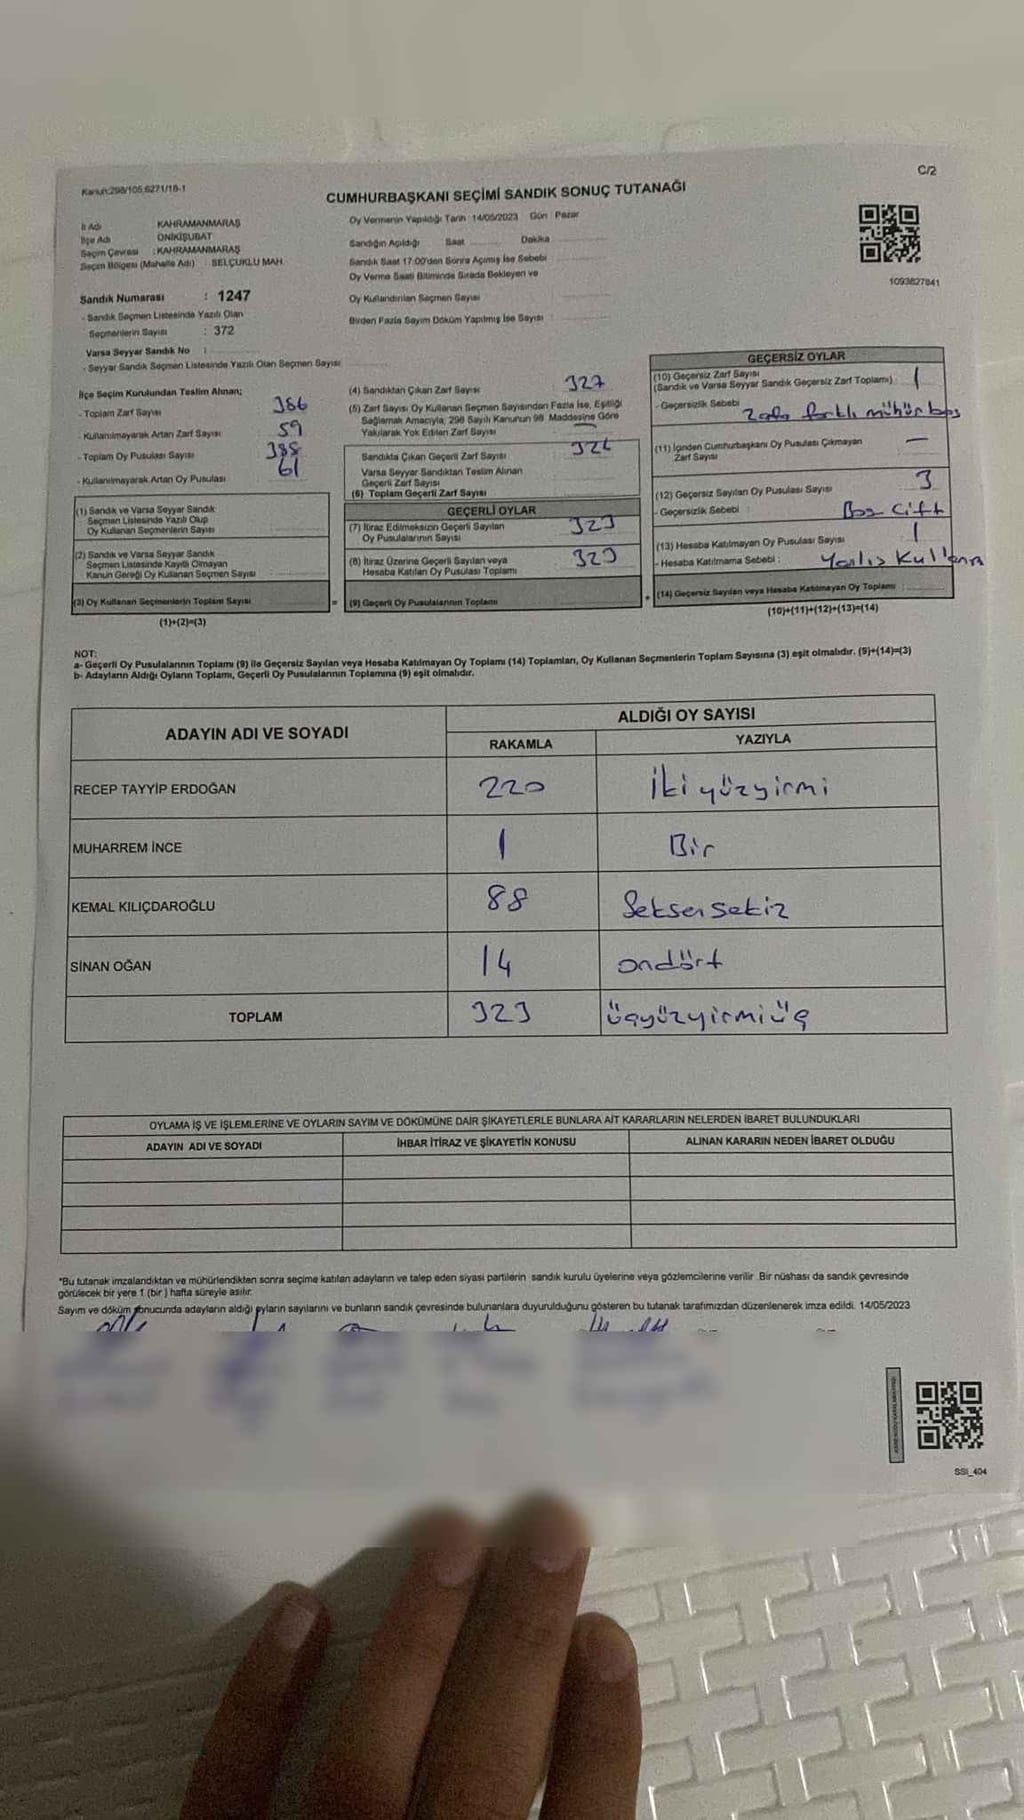 Kanun:298/105,6271/18-1
C/2
CUMHURBAŞKANI SEÇİMİ SANDIK SONUÇ TUTANAĞI
İl Adı KAHRAMANMARAŞ
İlçe Adı ONİKİŞUBAT
Seçim Çevresi : KAHRAMANMARAŞ
Seçim Bölgesi (Mahalle Adı) : SELÇUKLU MAH.
Sandık Numarası : 1247
- Sandık Seçmen Listesinde Yazılı Olan
Seçmenlerin Sayısı : 372
Varsa Seyyar Sandık No :
- Seyyar Sandık Seçmen Listesinde Yazılı Olan Seçmen Sayısı
Oy Vermenin Yapıldığı Tarih : 14/05/2023 Gün : Pazar
Sandığın Açıldığı Saat Dakika
Sandık Saat 17:00'den Sonra Açımış İse Sebebi
Oy Verme Saati Bitiminde Sırada Bekleyen ve
Oy Kullandırılan Seçmen Sayısı
Birden Fazla Sayım Döküm Yapılmış İse Sayısı :
1093827841
İlçe Seçim Kurulundan Teslim Alınan;
- Toplam Zarf Sayısı 386
- Kullanılmayarak Artan Zarf Sayısı 59
- Toplam Oy Pusulası Sayısı 388
- Kullanılmayarak Artan Oy Pusulası 61
(1) Sandık ve Varsa Seyyar Sandık
Seçmen Listesinde Yazılı Olup
Oy Kullanan Seçmenlerin Sayısı
(2) Sandık ve Varsa Seyyar Sandık
Seçmen Listesinde Kayıtlı Olmayan
Kanun Gereği Oy Kullanan Seçmen Sayısı
(3) Oy Kullanan Seçmenlerin Toplam Sayısı
(1)+(2)=(3)
(4) Sandıktan Çıkan Zarf Sayısı 327
(5) Zarf Sayısı Oy Kullanan Seçmen Sayısından Fazla İse, Eşitliği
Sağlamak Amacıyla, 298 Sayılı Kanunun 98. Maddesine Göre
Yakılarak Yok Edilen Zarf Sayısı —
Sandıkta Çıkan Geçerli Zarf Sayısı 326
Varsa Seyyar Sandıktan Teslim Alınan
Geçerli Zarf Sayısı
(6) Toplam Geçerli Zarf Sayısı
GEÇERLİ OYLAR
(7) İtiraz Edilmeksizin Geçerli Sayılan
Oy Pusulalarının Sayısı 323
(8) İtiraz Üzerine Geçerli Sayılan veya
Hesaba Katılan Oy Pusulası Toplamı 323
= (9) Geçerli Oy Pusulalarının Toplamı
GEÇERSİZ OYLAR
(10) Geçersiz Zarf Sayısı
(Sandık ve Varsa Seyyar Sandık Geçersiz Zarf Toplamı) 1
- Geçersizlik Sebebi Zarfa farklı mühür bas
(11) İçinden Cumhurbaşkanı Oy Pusulası Çıkmayan
Zarf Sayısı —
(12) Geçersiz Sayılan Oy Pusulası Sayısı 3
- Geçersizlik Sebebi : Boş Çift
(13) Hesaba Katılmayan Oy Pusulası Sayısı 1
- Hesaba Katılmama Sebebi : Yanlış Kullanım
+ (14) Geçersiz Sayılan veya Hesaba Katılmayan Oy Toplamı :
(10)+(11)+(12)+(13)=(14)
NOT:
a- Geçerli Oy Pusulalarının Toplamı (9) ile Geçersiz Sayılan veya Hesaba Katılmayan Oy Toplamı (14) Toplamları, Oy Kullanan Seçmenlerin Toplam Sayısına (3) eşit olmalıdır. (9)+(14)=(3)
b- Adayların Aldığı Oyların Toplamı, Geçerli Oy Pusulalarının Toplamına (9) eşit olmalıdır.
ADAYIN ADI VE SOYADI ALDIĞI OY SAYISI
RAKAMLA YAZIYLA
RECEP TAYYİP ERDOĞAN 220 İkiyüzyirmi
MUHARREM İNCE 1 Bir
KEMAL KILIÇDAROĞLU 88 Seksensekiz
SİNAN OĞAN 14 ondört
TOPLAM 323 üçyüzyirmiüç
OYLAMA İŞ VE İŞLEMLERİNE VE OYLARIN SAYIM VE DÖKÜMÜNE DAİR ŞİKAYETLERLE BUNLARA AİT KARARLARIN NELERDEN İBARET BULUNDUKLARI
ADAYIN ADI VE SOYADI İHBAR İTİRAZ VE ŞİKAYETİN KONUSU ALINAN KARARIN NEDEN İBARET OLDUĞU
*Bu tutanak imzalandıktan ve mühürlendikten sonra seçime katılan adayların ve talep eden siyasi partilerin sandık kurulu üyelerine veya gözlemcilerine verilir. Bir nüshası da sandık çevresinde
görülecek bir yere 1 (bir ) hafta süreyle asılır.
Sayım ve döküm sonucunda adayların aldığı oyların sayılarını ve bunların sandık çevresinde bulunanlara duyurulduğunu gösteren bu tutanak tarafımızdan düzenlenerek imza edildi. 14/05/2023
SSI_404